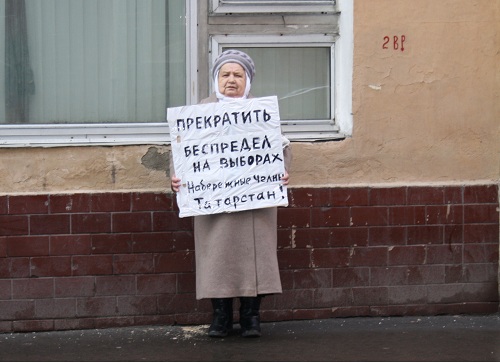 2 ВР
ПРЕКРАТИТЬ
БЕСПРЕДЕЛ
НА ВЫБОРАХ
"Набережные Челны
Татарстан!